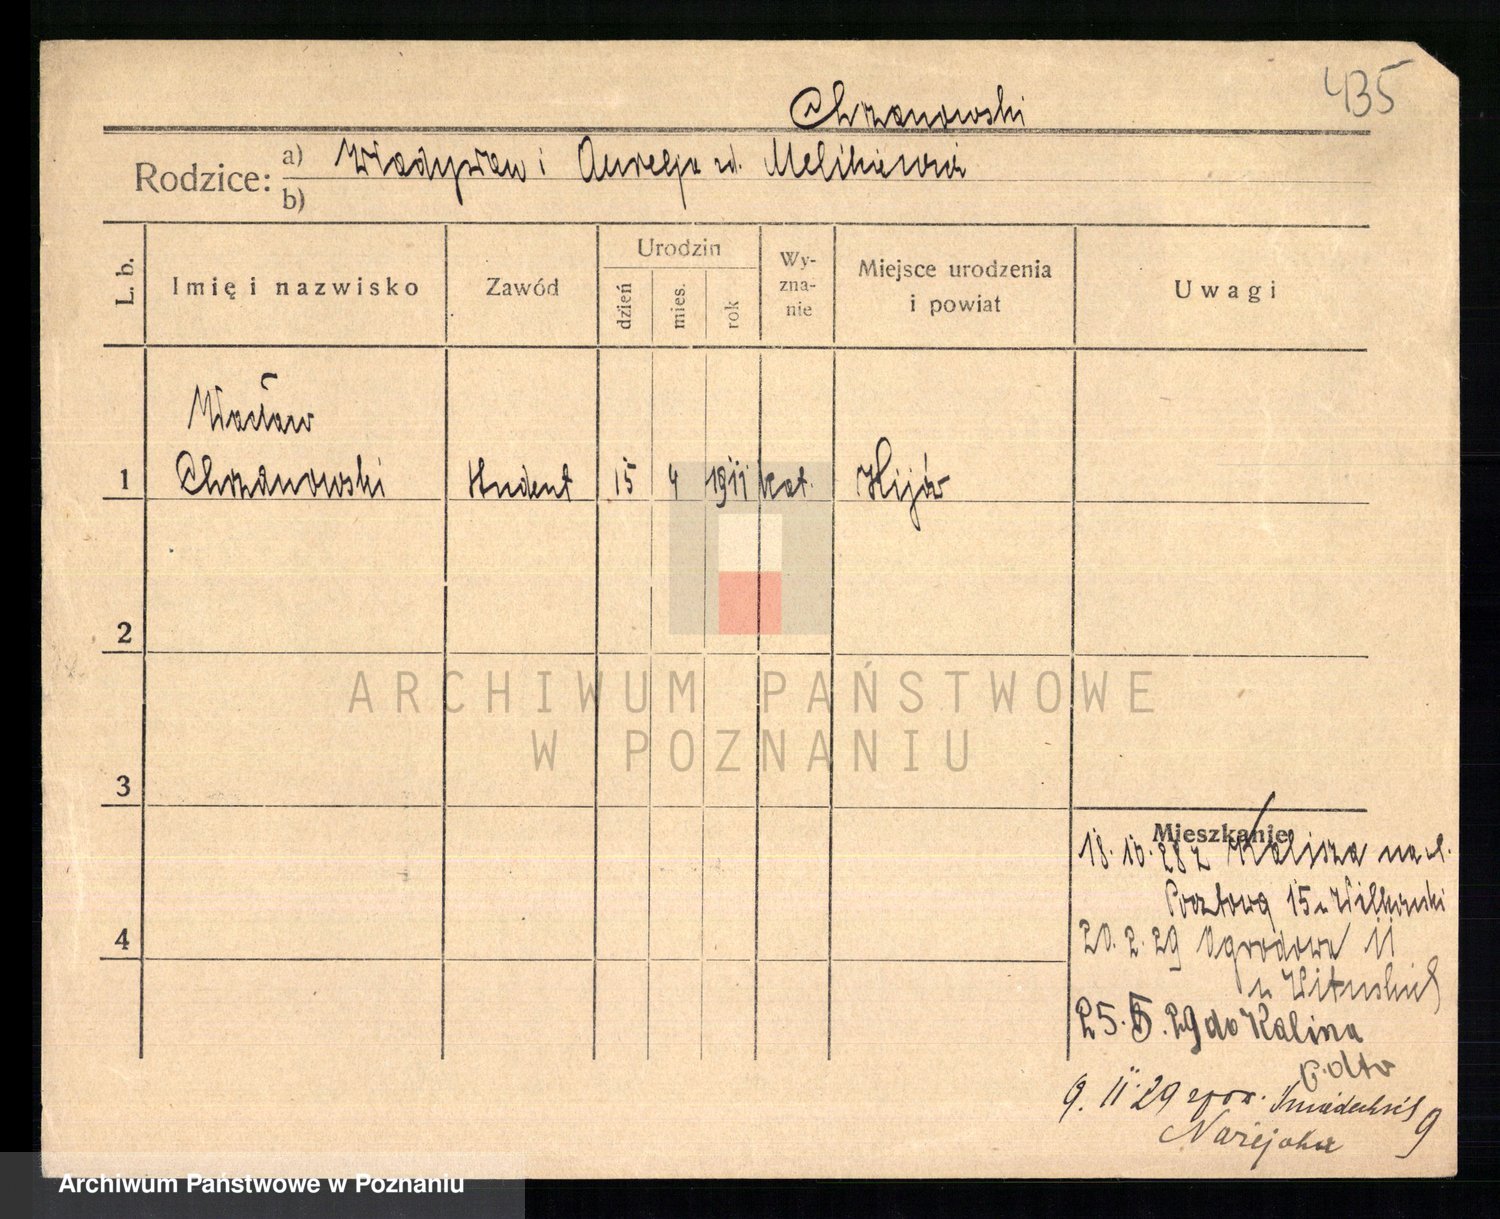 435
Chrzanowski
Rodzice: a) Władysław i Aurelja zd. Melikiewicz
b)
L. b.
Imię i nazwisko
Zawód
Urodzin
dzień
mies.
rok
Wy-
zna-
nie
Miejsce urodzenia
i powiat
Uwagi
Wacław
1 Chrzanowski student 15 4 1911 kat. Kijów
2
3
4
ARCHIWUM PAŃSTWOWE
W POZNANIU
Mieszkanie
18.10.28 z Kalisza na ul.
Pocztową 15 u
20.2.29 Ogrodowa 11
u
25.5.29 do
9.11.29
9
Archiwum Państwowe w Poznaniu